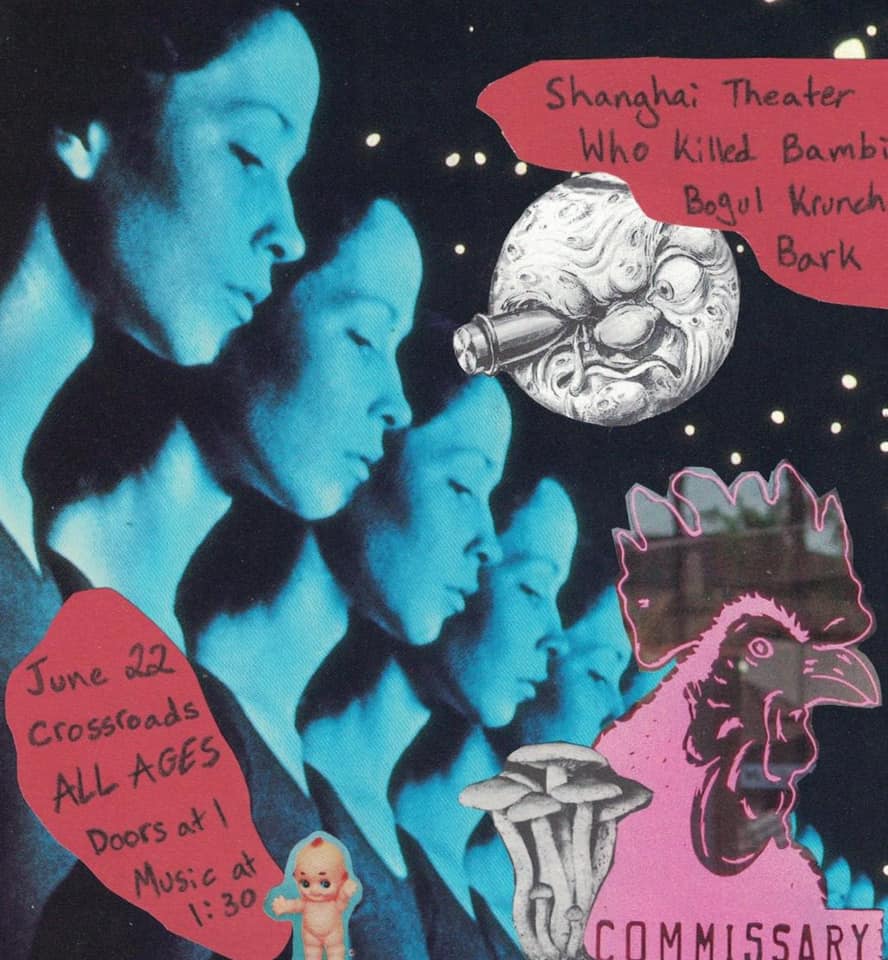 Shanghai Theater
Who Killed Bambi
Bogul Krunch
Bark
June 22
Crossroads
ALL AGES
Doors at 1
Music at
1:30
COMMISSARY